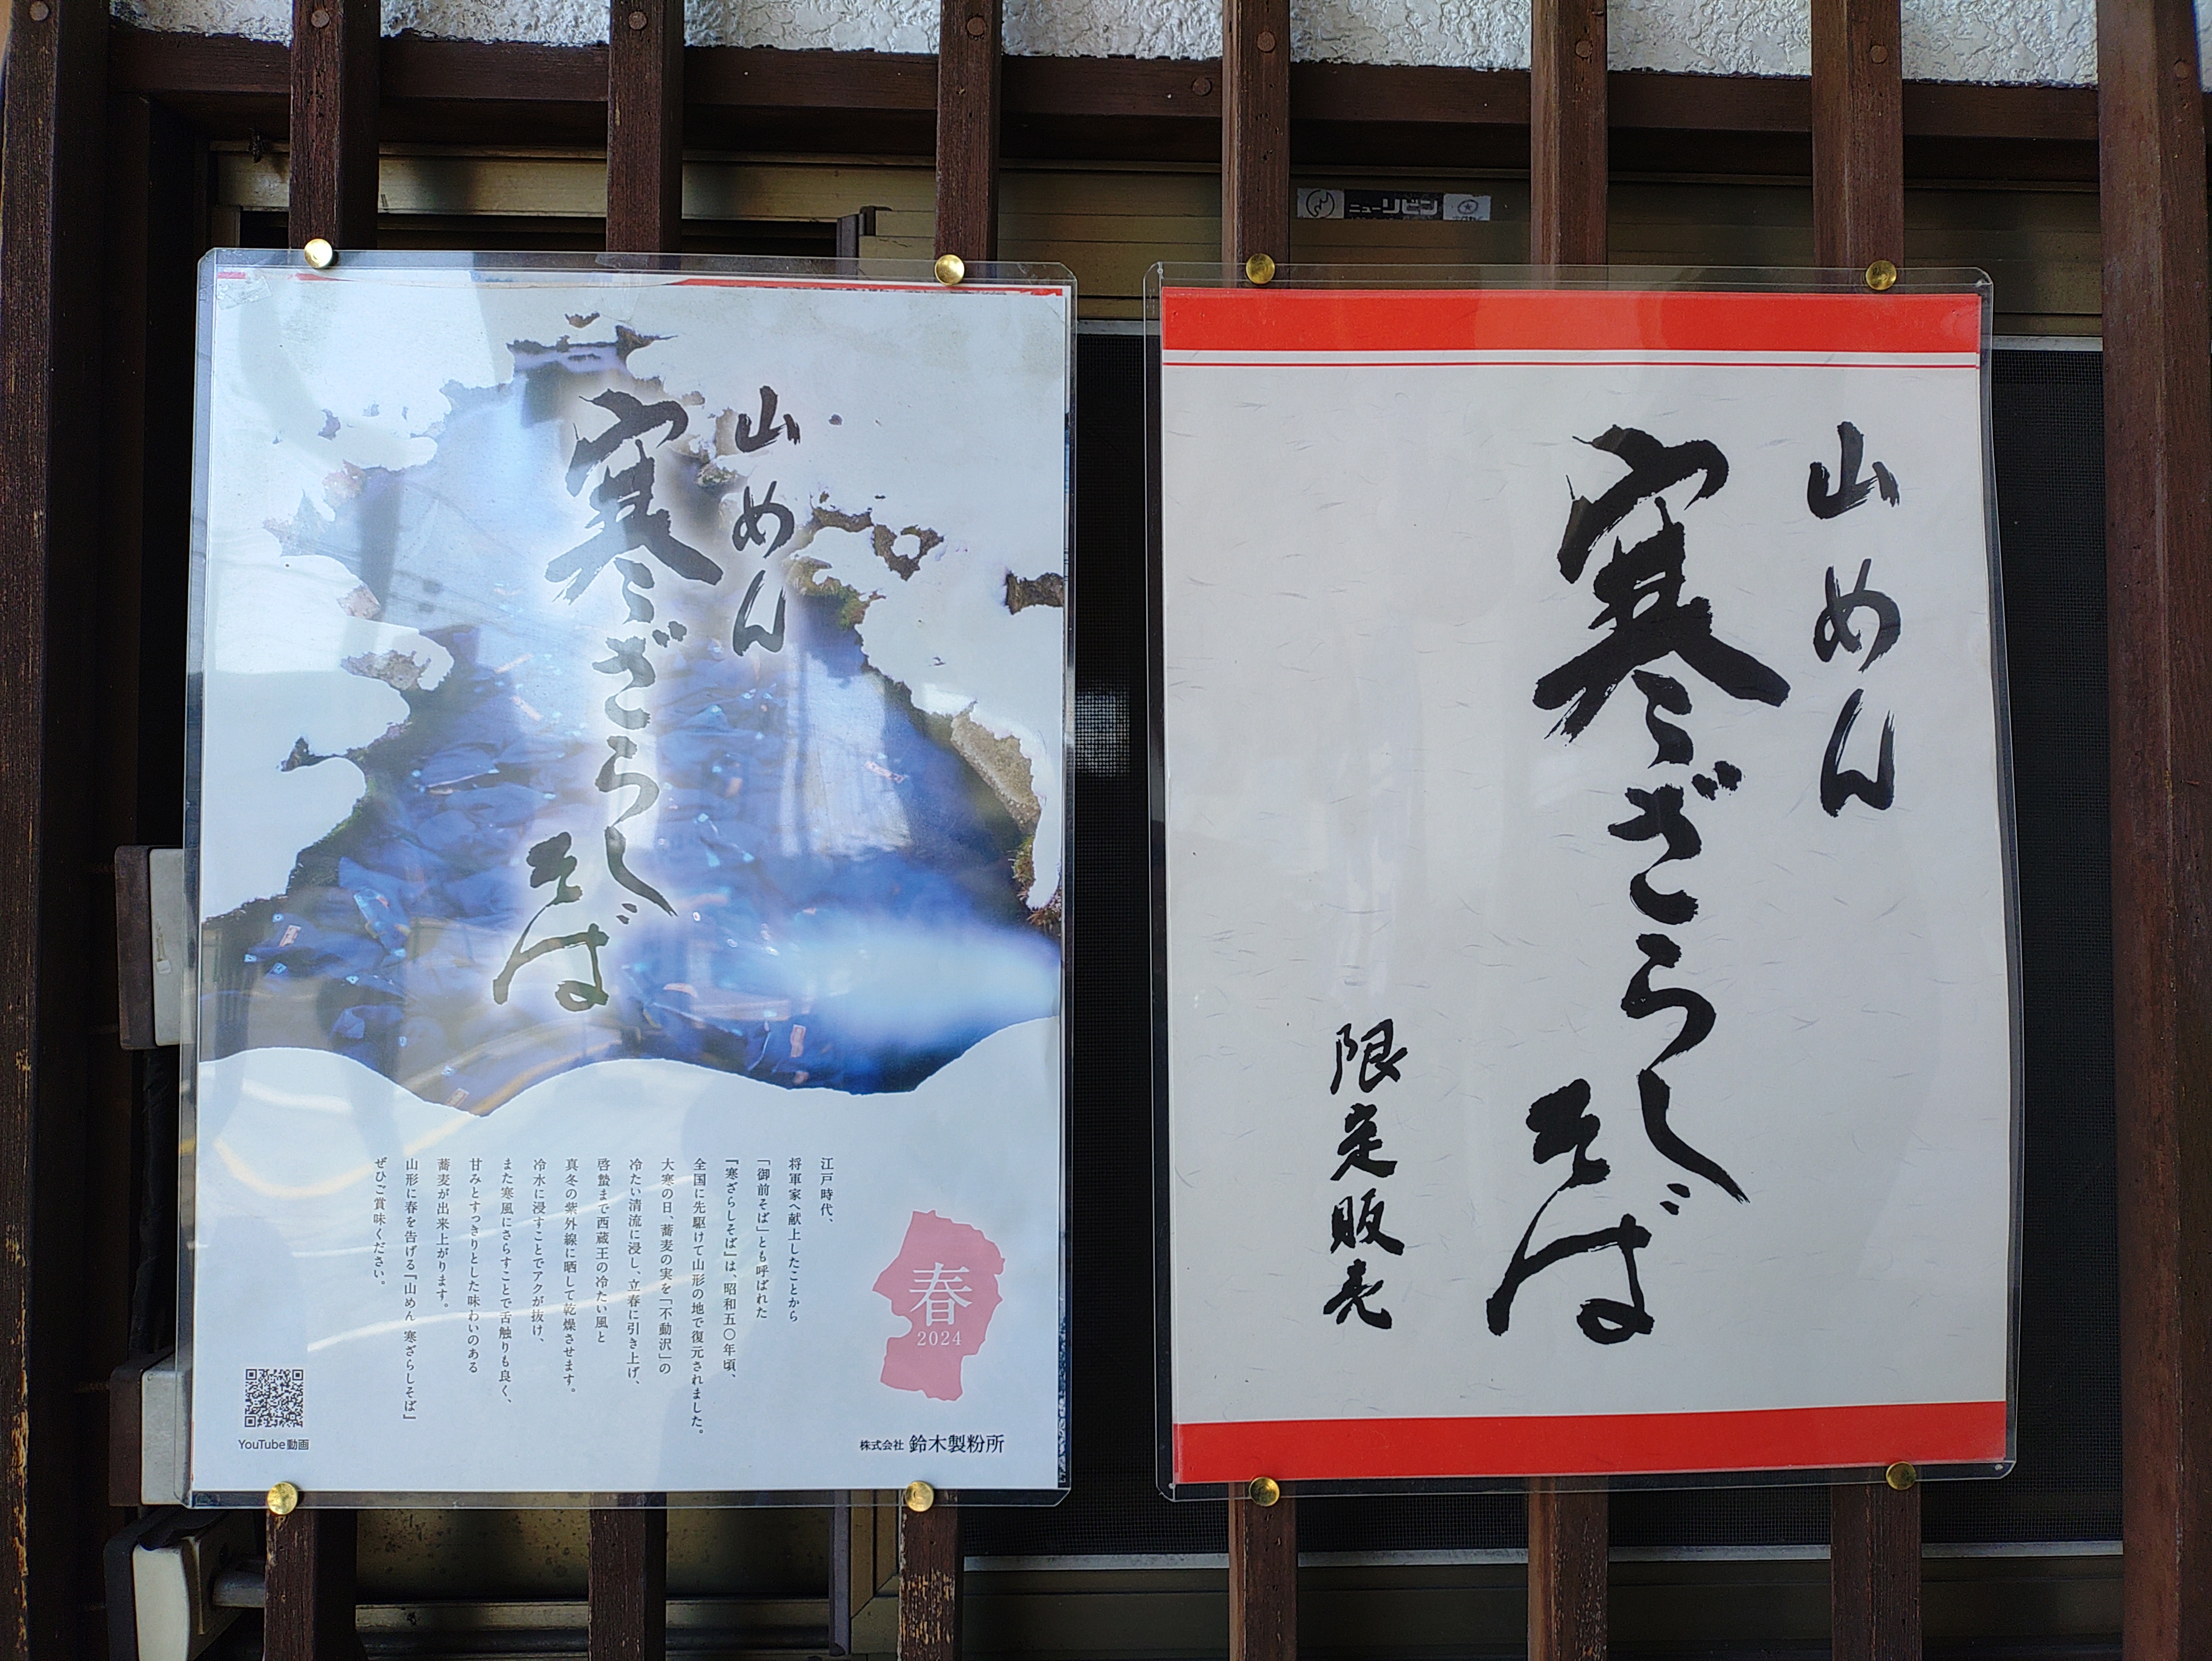 山めん
寒ざらし
そば
江戸時代、
将軍家へ献上したことから
「御前そば」とも呼ばれた
『寒ざらしそば』は、昭和五〇年頃、
全国に先駆けて山形の地で復元されました。
大寒の日、蕎麦の実を「不動沢」の
冷たい清流に浸し、立春に引き上げ、
啓蟄まで西蔵王の冷たい風と
真冬の紫外線に晒して乾燥させます。
冷水に浸すことでアクが抜け、
また寒風にさらすことで舌触りも良く、
甘みとすっきりとした味わいのある
蕎麦が出来上がります。
山形に春を告げる『山めん 寒ざらしそば』
ぜひご賞味ください。
春
2024
YouTube動画
株式会社 鈴木製粉所
山めん
寒ざらし
そば
限定販売
ニューリビン